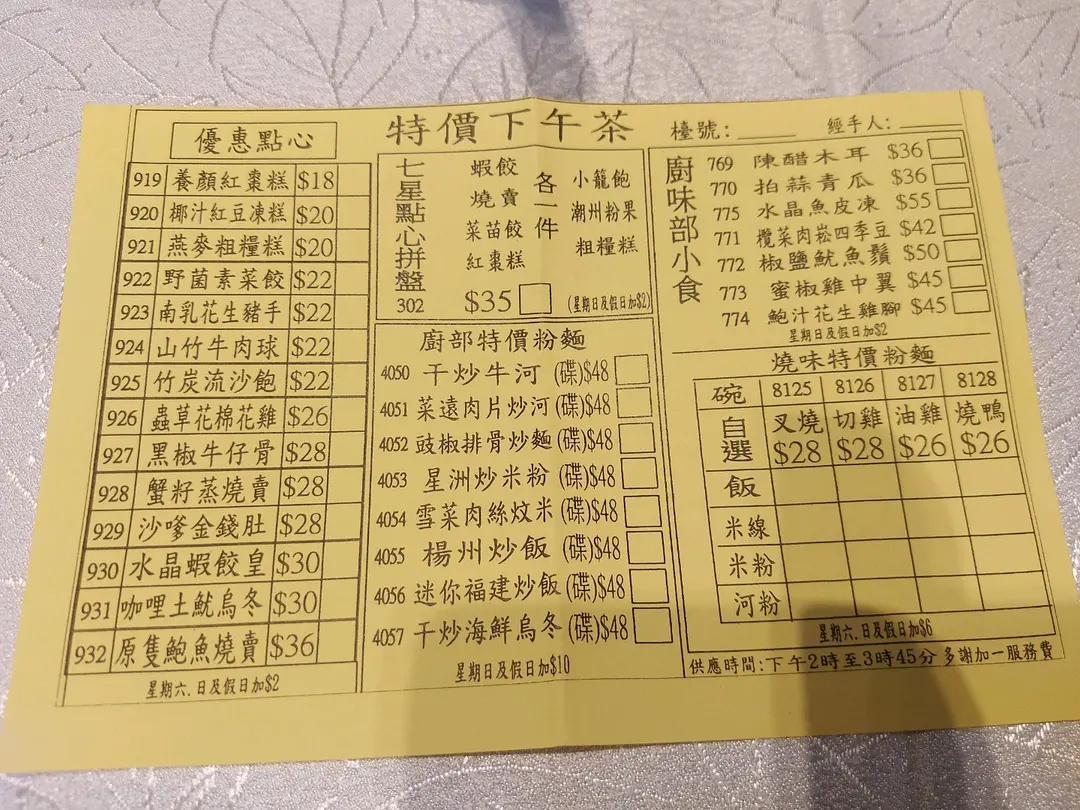 特價下午茶
檯號:
經手人:
優惠點心
919 養顏紅棗糕 $18
920 椰汁紅豆凍糕 $20
921 燕麥粗糧糕 $20
922 野菌素菜餃 $22
923 南乳花生豬手 $22
924 山竹牛肉球 $22
925 竹炭流沙飽 $22
926 蟲草花棉花雞 $26
927 黑椒牛仔骨 $28
928 蟹籽蒸燒賣 $28
929 沙嗲金錢肚 $28
930 水晶蝦餃皇 $30
931 咖哩土魷烏冬 $30
932 原隻鮑魚燒賣 $36
星期六.日及假日加$2
七星點心拼盤
302
蝦餃
燒賣
菜苗餃
紅棗糕
各一件
小籠飽
潮州粉果
粗糧糕
$35
(星期日及假日加$2)
廚部特價粉麵
4050 干炒牛河 (碟)$48
4051 菜遠肉片炒河 (碟)$48
4052 豉椒排骨炒麵 (碟)$48
4053 星洲炒米粉 (碟)$48
4054 雪菜肉絲炆米 (碟)$48
4055 楊州炒飯 (碟)$48
4056 迷你福建炒飯 (碟)$48
4057 干炒海鮮烏冬 (碟)$48
星期日及假日加$10
廚味部小食
769 陳醋木耳 $36
770 拍蒜青瓜 $36
775 水晶魚皮凍 $55
771 欖菜肉崧四季豆 $42
772 椒鹽魷魚鬚 $50
773 蜜椒雞中翼 $45
774 鮑汁花生雞腳 $45
星期日及假日加$2
燒味特價粉麵
碗 8125 8126 8127 8128
自選 叉燒 切雞 油雞 燒鴨
$28 $28 $26 $26
飯
米線
米粉
河粉
星期六.日及假日加$6
供應時間:下午2時至3時45分 多謝加一服務費